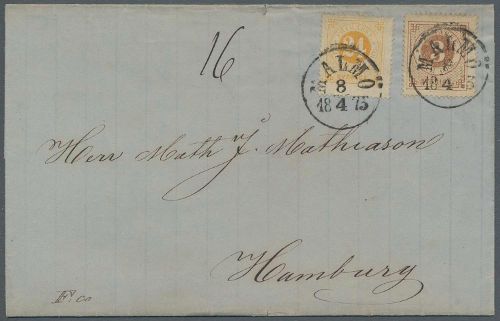 16
24
3
MALMÖ
8
18 4 75
MALMÖ
8
18 4 75
Herr Math J. Mathiason
Hamburg